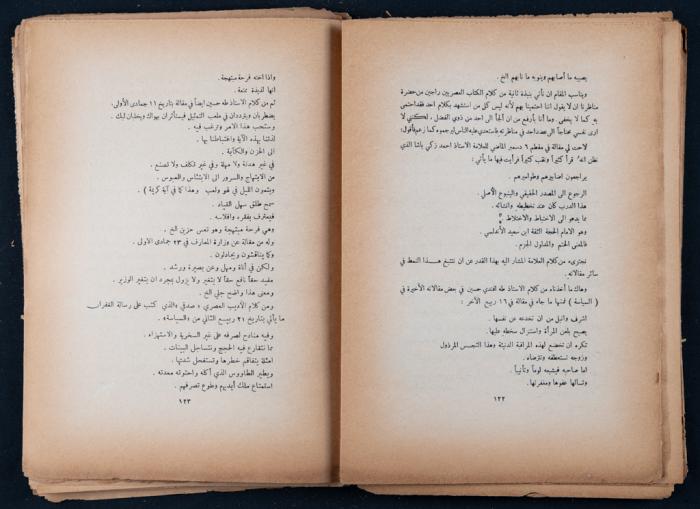 يصيبه ما أصابهم وينوبه ما نابهم الخ .
ويناسب المقام ان نأتي بنبذة ثانية من كلام الكتاب العصريين راجين من حضرة
مناظرنا ان لا يقول اننا احتمينا بهم لأنه ليس كل من استشهد بكلام احد فقد احتمى
به كما لا يخفى . وما أنا بأرفع من أن ألجأ الى احد من ذوي الفضل ، لكنني لا
ارى نفسي محتاجاً الى عضد احد في مناظرته
لاحت لي مقالة في مقطم ٦ دسمبر الماضي للعلامة الاستاذ احمد زكي باشا الذي
نظن انه قرأ كثيراً ونقب كثيراً فرأيت فيها ما يأتي :
يراجعون اضابيرهم وطواميرهم .
الرجوع الى المصدر الحقيقي والينبوع الأصلي .
هذا الدرب كان عند تخطيطه وانشائه .
مما يدعو الى الاختباط والاختلاط .
وهو الامام الحجة الثقة ابن سعيد الأندلسي .
فالمعنى الحتم والمدلول الجزم .
نجتزىء من كلام العلامة المشار اليه بهذا القدر عن ان نتتبع هـذا النمط في
سائر مقالاته .
وهاك ما أخذناه من كلام الاستاذ طه افندي حسين في بعض مقالاته الأخيرة في
( السياسة ) فمنها ما جاء في مقالة في ١٦ ربيع الآخر :
اشرف وانبل من ان تخدعه عن نفسها .
يصبح بلعن المرأة واستنزال سخطه عليها .
تكره ان تخضع لهذه المراقبة الدنيئة وهذا التجسس المرذول
وزوجه تستعطفه وتترضاه .
اما صاحبه فيشبعه لوماً وتأنيباً .
وتسألها عفوها ومغفرتها .
١٢٢
واذا اخته فرحة مبتهجة .
انها لذيذة ممتعة .
ثم من كلام الاستاذ طه حسين ايضاً في مقالة بتاريخ ١١ جمادى الأولى .
يضطربان ويترددان في ملعب التمثيل فيستأثران بهواك ويخلبان لبك .
وتستحب هذا الأمر وترغب فيه .
لذتنا بهذه الآية واغتباطنا بها .
الى الحزن والكآبة .
في غير هدنة ولا مهلة وفي غير تكلف ولا تصنع .
من الابتهاج والسرور الى الابتئاس والعبوس .
وينفقون الليل في لهو ولعب وهذا كما في آية كريمة ) .
سمح طلق سهل القياد .
فيعترف بفقره وافلاسه .
وهي فرحة مبتهجة وهو تعس حزين الخ .
وله من مقالة عن وزارة المعارف في ٢٣ جمادى الاولى .
وكما يناقشون ويجادلون .
ولكن في أناة ومهل وعن بصيرة ورشد .
مفيد حقاً نافع حقاً لا يتغير ولا يزول بمجرد ان يتغير الوزير .
ومعنى هذا واضح جلي الخ .
ومن كلام الأديب العصري « صدقي » الذي كتب على رسالة الغفران
ما يأتي بتاريخ ٢١ ربيع الثاني من « السياسة » .
وفيه منادح لصرفه على غير السخرية والاستهزاء .
مما تتقارع فيه الحجج وتتساجل البينات .
يتفاقم خطرها وتستفحل شدتها .
ويطير الطاووس الذي أكله واحتوته معدته .
استمتاع ملك أيديهم وطوع تصرفهم .
١٢٣